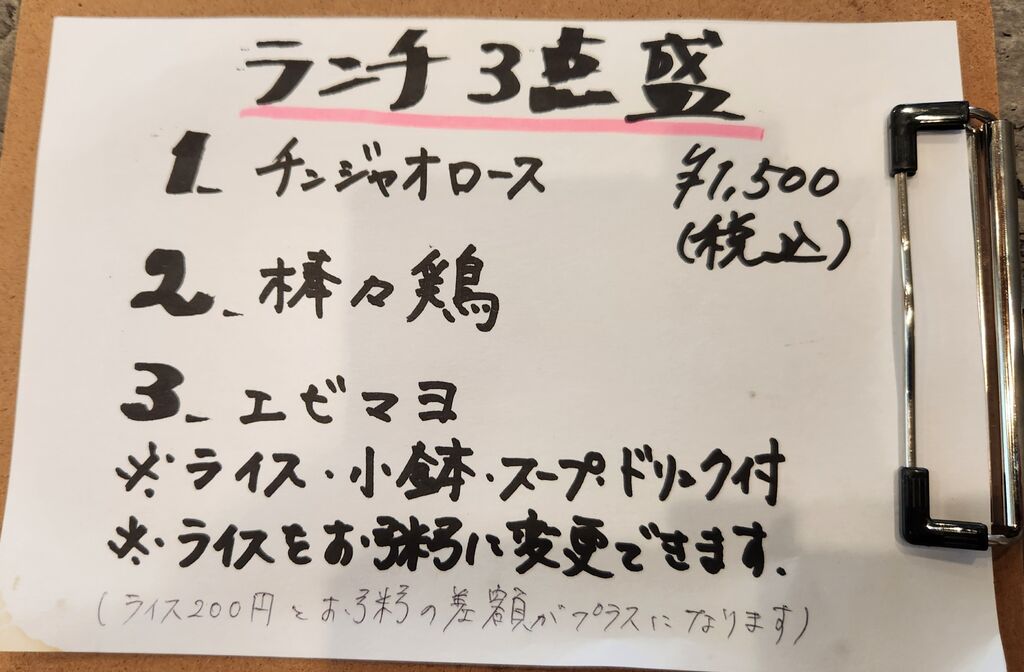 ランチ3点盛
1. チンジャオロース ¥1,500
(税込)
2. 棒々鶏
3. エビマヨ
※ライス・小鉢・スープ・ドリンク付
※ライスをお粥に変更できます.
(ライス200円とお粥の差額がプラスになります)